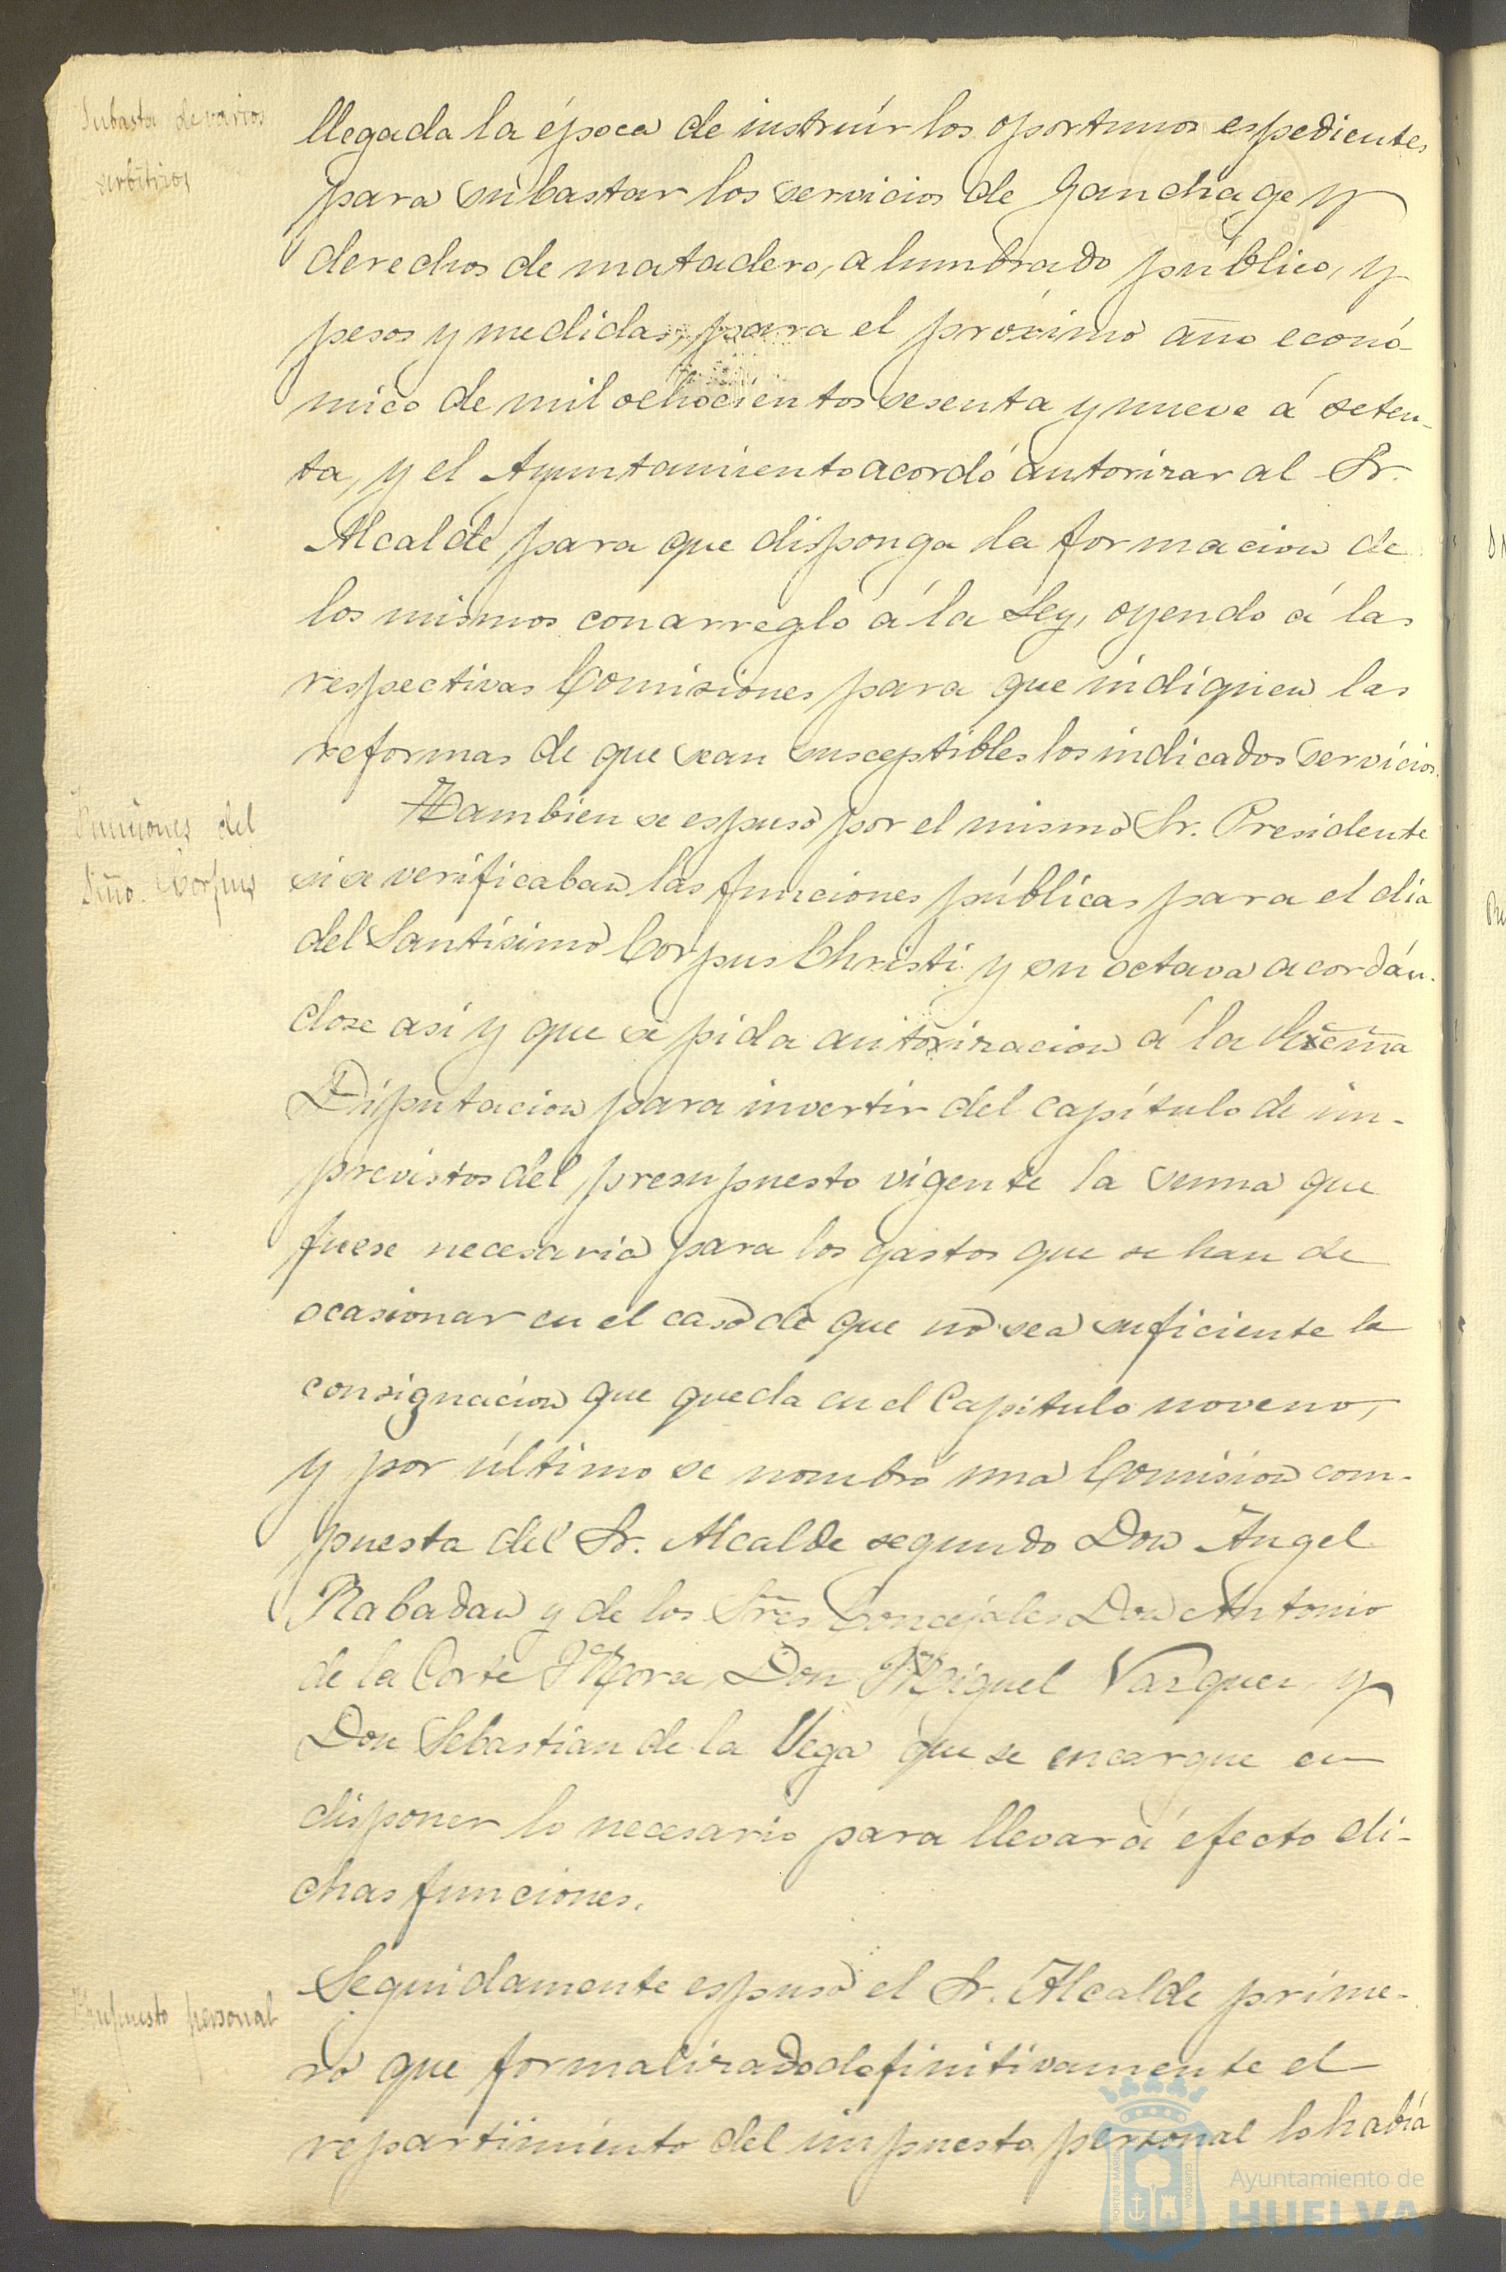 Subasta de varios
arbitrios
llegada la época de instruir los oportunos espedientes
para subastar los servicios de ganchage y
derechos de matadero, alumbrado público, y
pesos y medidas, para el próximo año econó
mico de mil ochocientos sesenta y nueve á seten-
ta, y el Ayuntamiento acordó autorizar al Sr.
Alcalde para que disponga la formacion de
los mismos con arreglo á la Ley, oyendo á las
respectivas Comisiones para que indiquen las
reformas de que sean susceptibles los indicados servicios.
Funciones del
Stmo. Corpus
Tambien se espuso por el mismo Sr. Presidente
si se verificaban las funciones públicas para el dia
del Santísimo Corpus Christi y su octava acordán-
dose asi y que se pida autorizacion á la Excma
Diputacion para invertir del capítulo de im-
previstos del presupuesto vigente la suma que
fuese necesaria para los gastos que se han de
ocasionar en el caso de que no sea suficiente la
consignacion que queda en el Capitulo noveno,
y por último se nombró una Comision com-
puesta del Sr. Alcalde segundo Don Angel
Rabadan y de los Sres Concejales Don Antonio
de la Corte Mora, Don Miguel Vazquez, y
Don Sebastian de la Vega que se encargue en
disponer lo necesario para llevar á efecto di-
chas funciones.
Impuesto personal
Seguidamente espuso el Sr. Alcalde prime-
ro que formalizado definitivamente el
repartimiento del impuesto personal lo habia
Ayuntamiento de
HUELVA